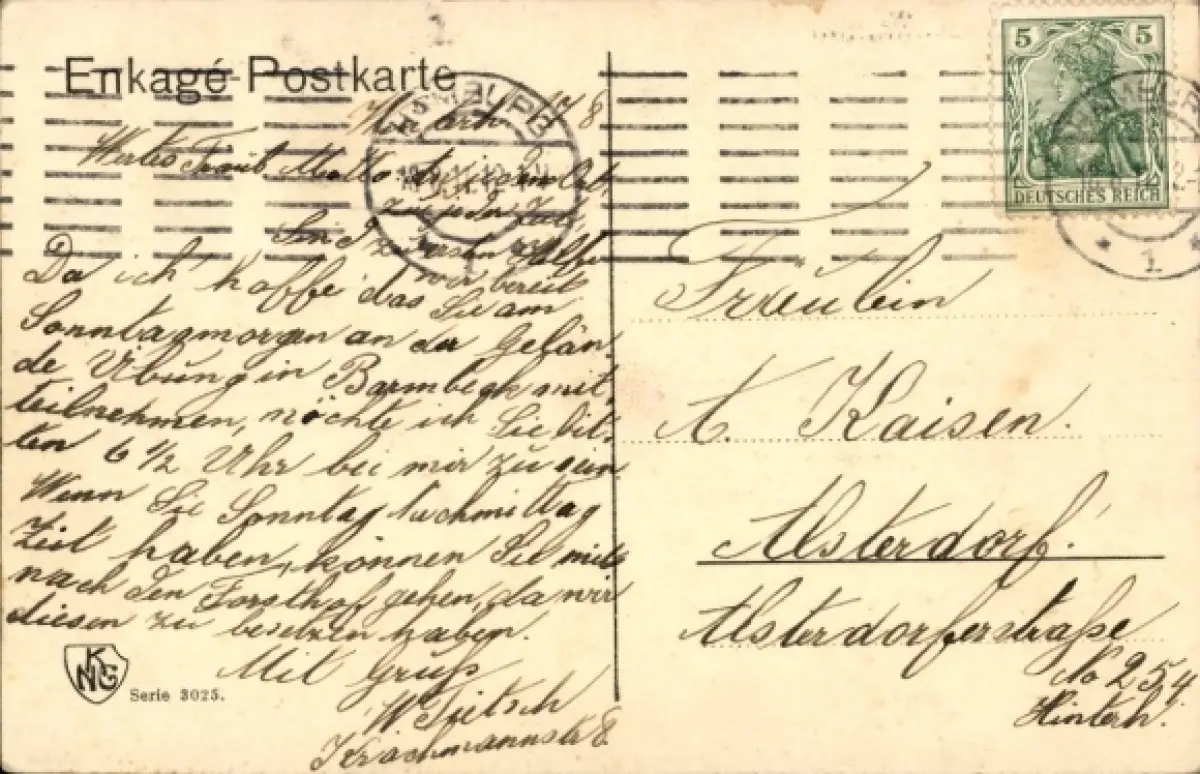 Enkagé Postkarte
HAMBURG
1.
5 5
DEUTSCHES REICH
Wertes
Da ich hoffe das Sie am
Sonntagmorgen an der Gelän-
de Übung in Barmbegk mit-
teilnehmen, möchte ich Sie bit-
ten 6 1/2 Uhr bei mir zu sein.
Wenn Sie Sonntag Nachmittag
Zeit haben, können Sie mit
nach den Forsthof gehen, da wir
diesen zu besetzen haben.
Mit Gruß
W Tietsch
KNG
Serie 3025.
Fräulein
A. Kaisen.
Alsterdorf.
Alsterdorferstraße
No 254
Hinterh.